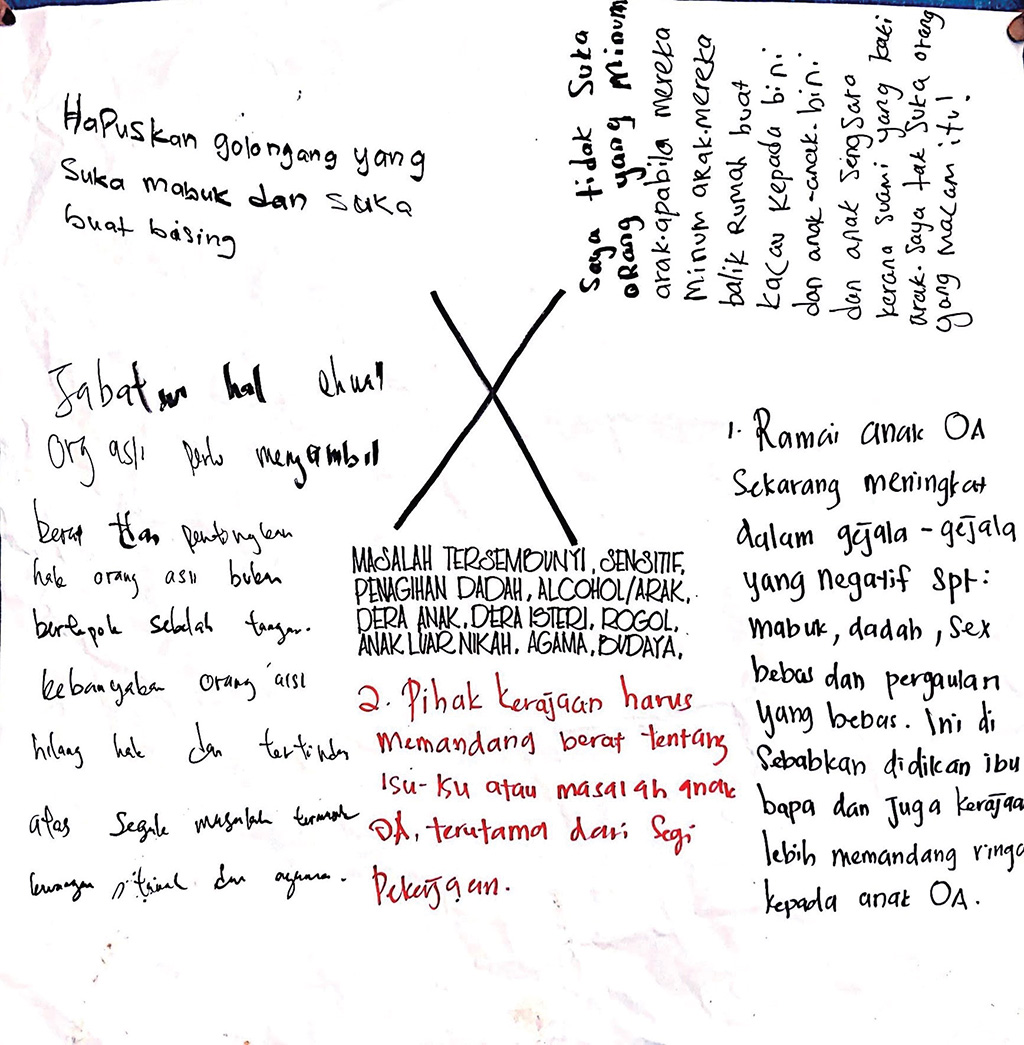 HaPuskan golongang yang
Suka mabuk dan suka
buat bising
Saya tidak Suka
ORang yang Minum
arak.apabila mereka
Minum arak.mereka
balik Rumah buat
Kacau kepada bini
dan anak-anak.bini
dan anak sengsara
kerana suami yang kaki
arak. Saya tak suka orang
yang macam itu!
Jabatan hal ehwal
Org asli perlu mengambil
berat dan
hak orang asli bukan
bertepok sebelah tangan.
kebanyakan orang asli
hilang hak dan tertindas
atas segala masalah termasuk
dan agama.
MASALAH TERSEMBUNYI, SENSITIF,
PENAGIHAN DADAH, ALCOHOL/ARAK,
DERA ANAK, DERA ISTERI, ROGOL,
ANAK LUAR NIKAH, AGAMA, BUDAYA,
1. Ramai anak OA
Sekarang meningkat
dalam gejala-gejala
yang negatif spt:
mabuk, dadah, sex
bebas dan pergaulan
yang bebas. Ini di
Sebabkan didikan ibu
bapa dan juga kerajaa
lebih memandang ringa
kepada anak OA.
2. Pihak kerajaan harus
memandang berat tentang
isu-isu atau masalah anak
OA, terutama dari segi
Pekerjaan.